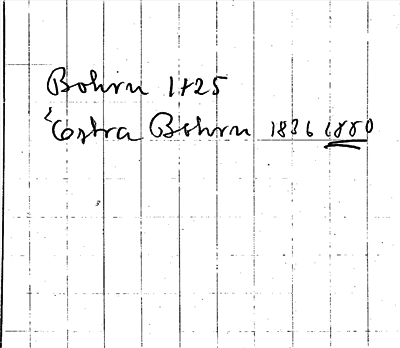 Bohrn 1725
Östra Bohrn 1836 1880